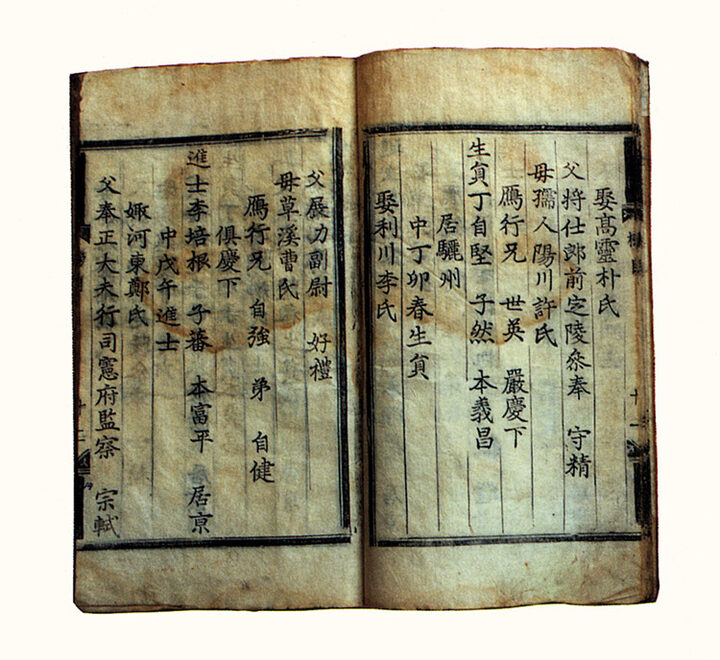 娶高靈朴氏
父將仕郎前定陵叅奉 守精
母孺人陽川許氏
鴈行兄 世英 嚴慶下
生貟丁自堅 子然 本義昌
居驪州
中丁卯春生貟
娶利川李氏
父展力副尉 好禮
母草溪曹氏
鴈行兄 自強 弟 自健
俱慶下
進士李培根 子蕃 本富平 居京
中戊午進士
娵河東鄭氏
父奉正大夫行司憲府監察 宗軾